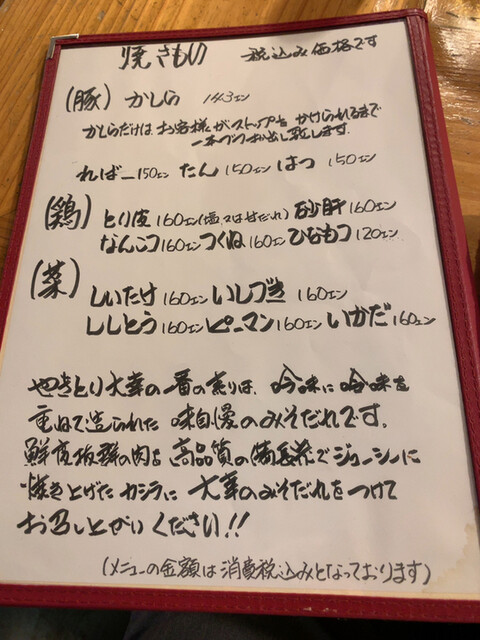 焼きもの 税込み価格です
(豚) かしら 143エン
かしらだけは お客様がストップを かけられるまで
一本づつお出し致します.
ればー150エン たん 150エン はつ 150エン
(鶏) とり皮 160エン(塩又は甘だれ) 砂肝 160エン
なんこつ160エン つくね 160エン ひなもつ 120エン
(菜)
しいたけ 160エン いしづき 160エン
ししとう 160エン ピーマン 160エン いかだ 160エン
やきとり大幸の一番の売りは、吟味に吟味を
重ねて造られた 味自慢のみそだれです。
鮮度抜群の肉を 高品質の備長炭でジューシーに
焼き上げた カシラに 大幸のみそだれをつけて
お召し上がりください!!
(メニューの金額は消費税込みとなっております)